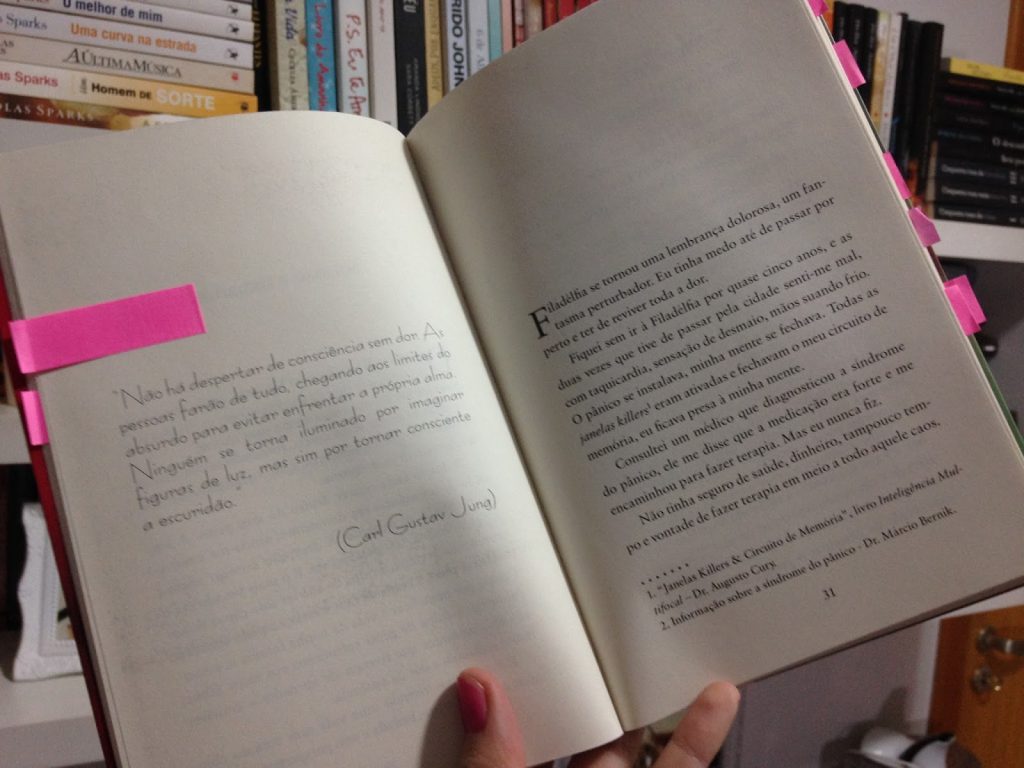 O melhor de mim
Sparks
Uma curva na estrada
A ÚLTIMA MÚSICA
as Sparks
Homem de SORTE
OLAS SPARKS
P.S. Eu te Am
RIDO JOHN
"Não há despertar de consciência sem dor. As
pessoas farão de tudo, chegando aos limites do
absurdo para evitar enfrentar a própria alma.
Ninguém se torna iluminado por imaginar
figuras de luz, mas sim por tornar consciente
a escuridão."
(Carl Gustav Jung)
Filadélfia se tornou uma lembrança dolorosa, um fan-
tasma perturbador. Eu tinha medo até de passar por
perto e ter de reviver toda a dor.
Fiquei sem ir à Filadélfia por quase cinco anos, e as
duas vezes que tive de passar pela cidade senti-me mal,
com taquicardia, sensação de desmaio, mãos suando frio.
O pânico se instalava, minha mente se fechava. Todas as
janelas killers¹ eram ativadas e fechavam o meu circuito de
memória, eu ficava presa à minha mente.
Consultei um médico que diagnosticou a síndrome
do pânico, ele me disse que a medicação era forte e me
encaminhou para fazer terapia. Mas eu nunca fiz.
Não tinha seguro de saúde, dinheiro, tampouco tem-
po e vontade de fazer terapia em meio a todo aquele caos,
1. "Janelas Killers & Circuito de Memória", livro Inteligência Mul-
tifocal – Dr. Augusto Cury.
2. Informação sobre a síndrome do pânico - Dr. Márcio Bernik.
31